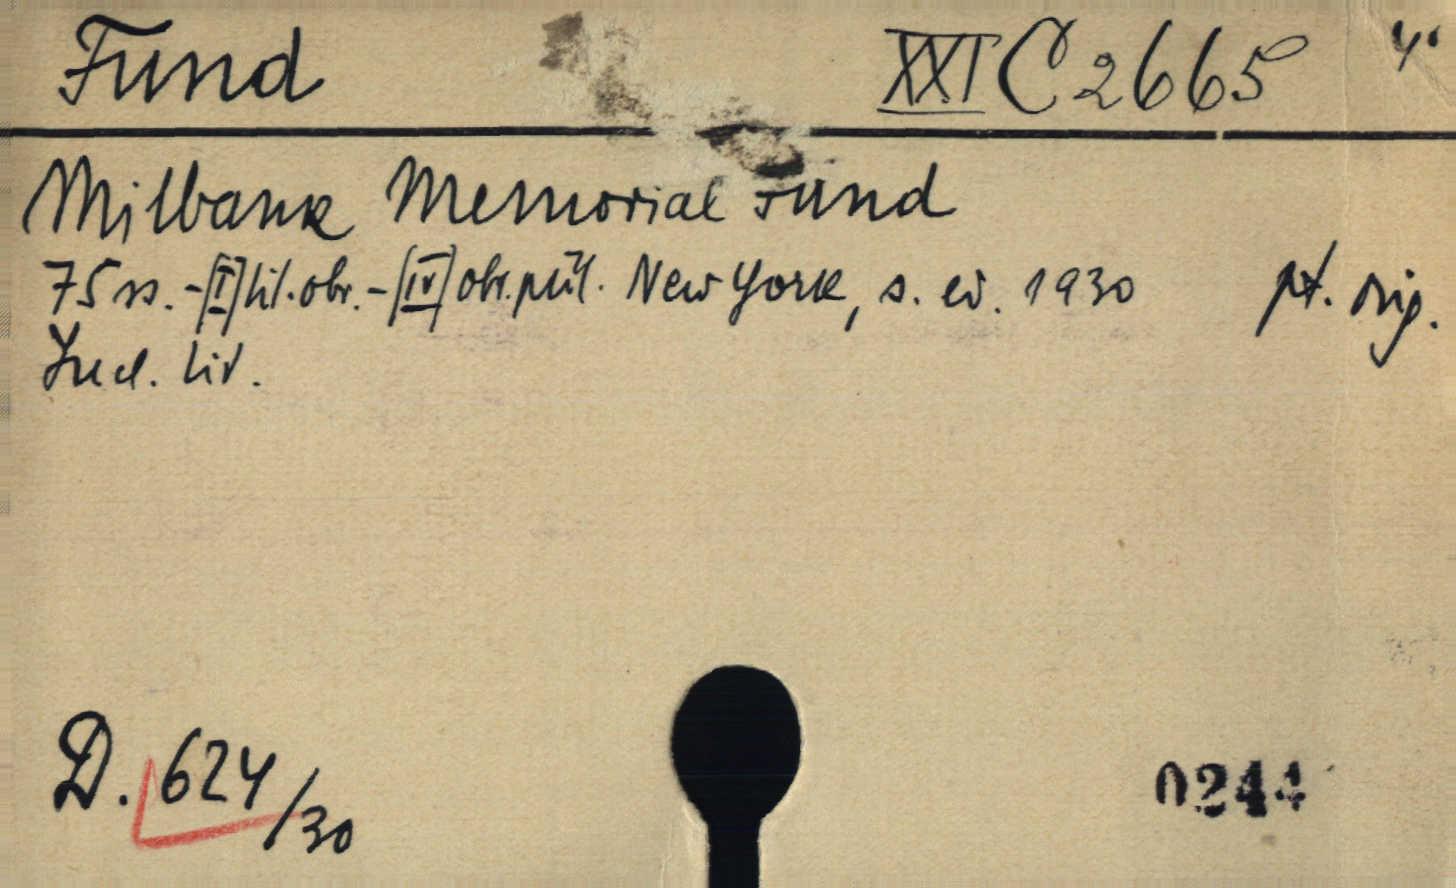 Fund XXI C 2665 4°
Milbank Memorial Fund
75 ss. - [I] tit. obr. - [IV] obr. příl. New York, s. ed. 1930 pt. orig.
Incl. liv.
D. 624/30
0244